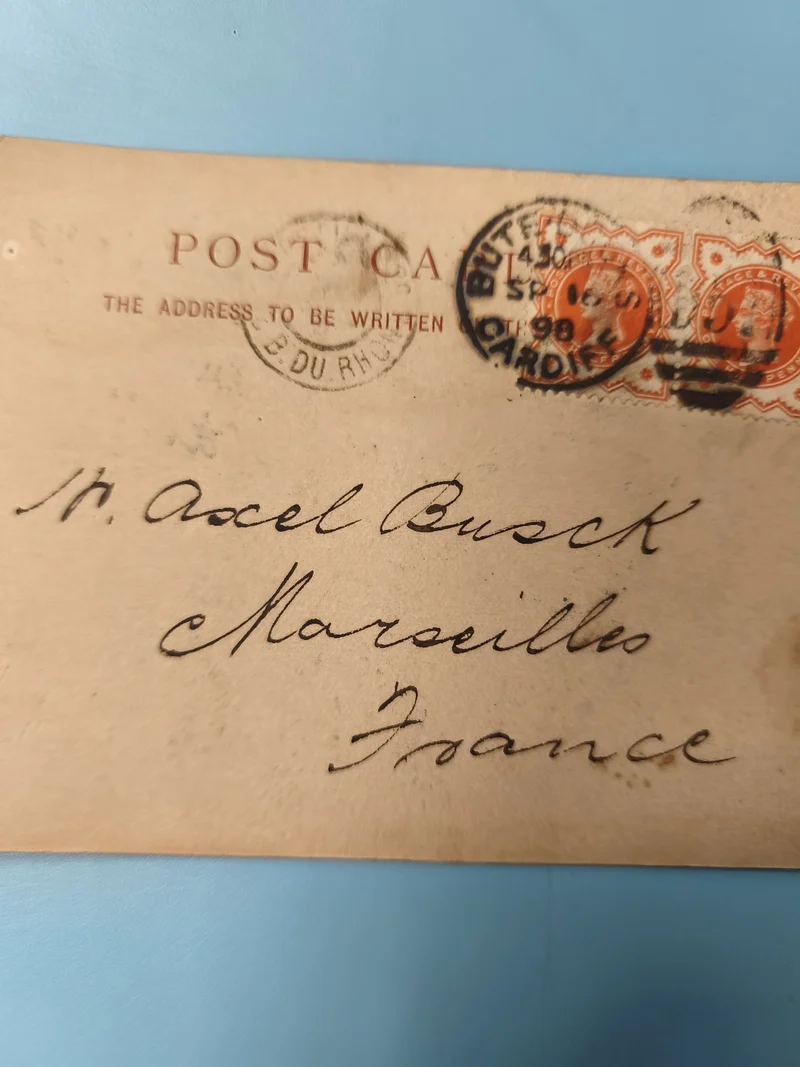 POST CA
THE ADDRESS TO BE WRITTEN
B. DU RHÔN
BUTE
430
SP 16 S
98
CARDIFF
Axel Busck
Marseilles
France